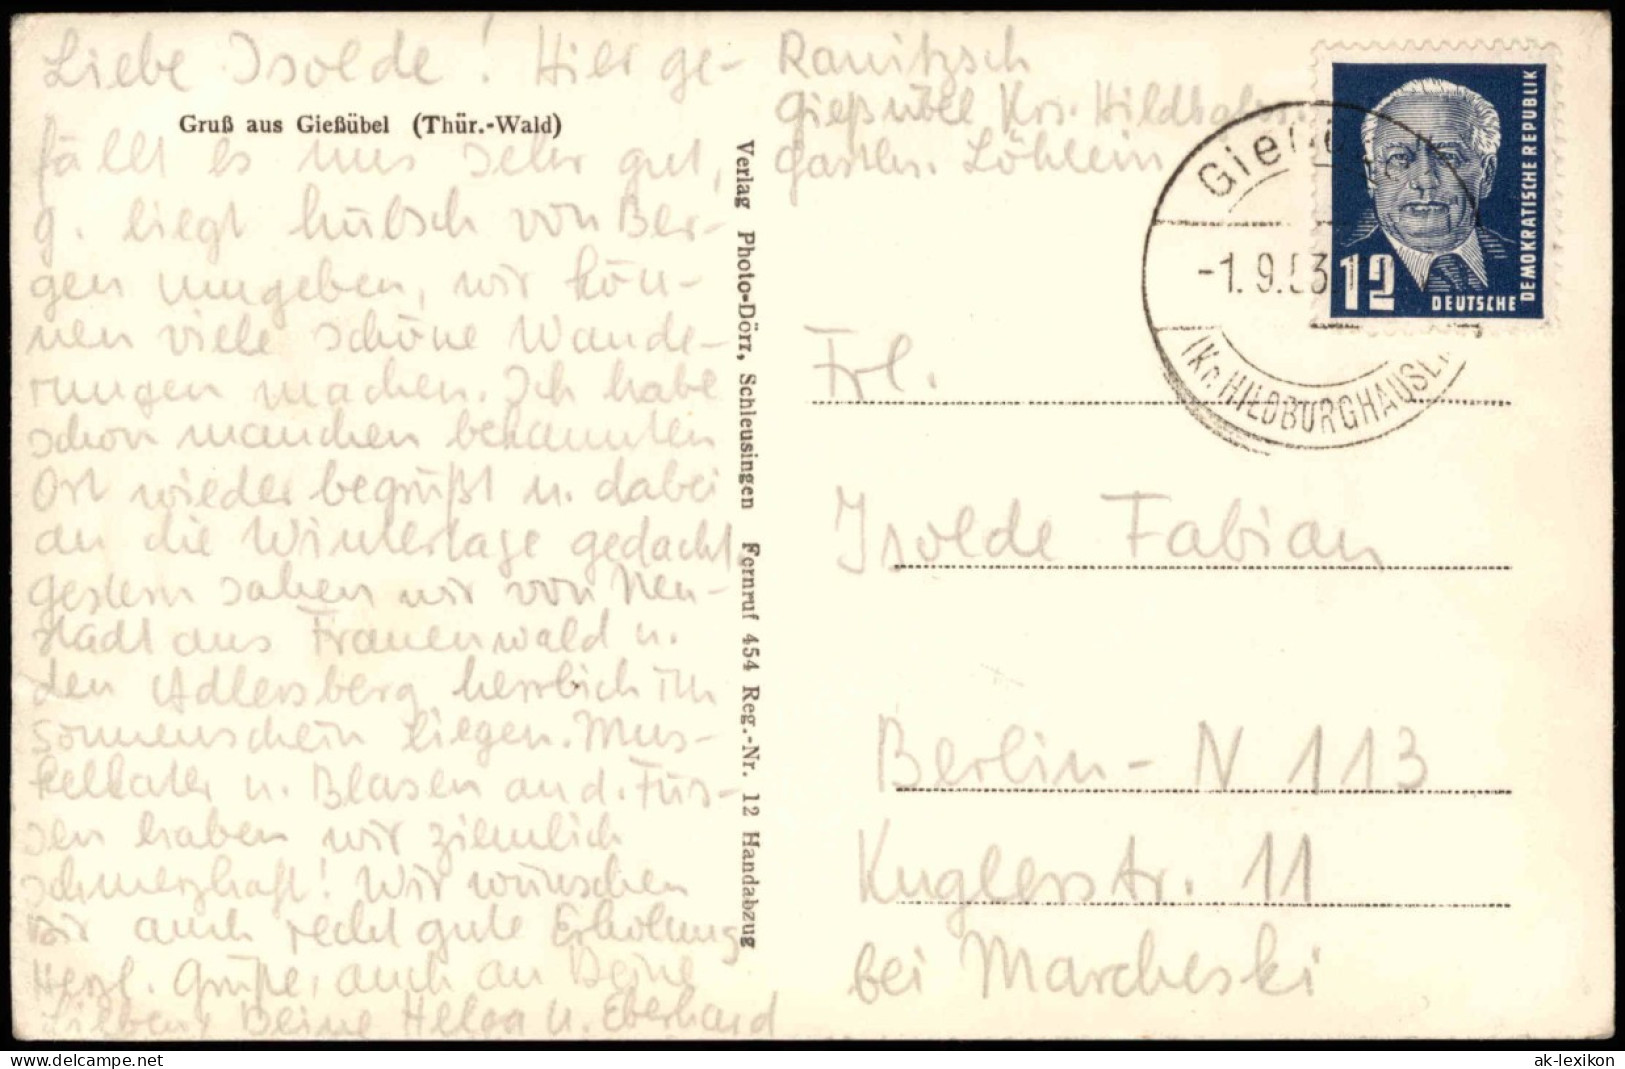 Liebe Isolde! Hier ge-
Gruß aus Gießübel (Thür.-Wald)
fällt es uns sehr gut,
g. liegt hübsch von Ber-
gen umgeben, wir kön-
nen viele schöne Wande-
rungen machen. Ich habe
schon manchen bekannten
Ort wieder begrüßt u. dabei
an die Wintertage gedacht.
Gestern sahen wir von Neu-
stadt aus Frauenwald u.
den Adlersberg herrlich im
Sonnenschein liegen. Mus-
kelkater u. Blasen an d. Füs-
sen haben wir ziemlich
schmerzhaft! Wir wünschen
Dir auch recht gute Erholung
Herzl. Grüße, auch an Deine
Lieben, Deine Helga u. Eberhard
Verlag Photo-Dörr, Schleusingen Fernruf 454 Reg.-Nr. 12 Handabzug
Ranitzsch
Gießübel Krs. Hildbghs.
Gasth. Löhlein
DEUTSCHE DEMOKRATISCHE REPUBLIK
12
-1.9.53
(Kr. HILDBURGHAUSEN
Frl.
Isolde Fabian
Berlin-N 113
Kuglerstr. 11
bei Marcheski
© ak-lexikon.de/delcampe.net
ak-lexikon